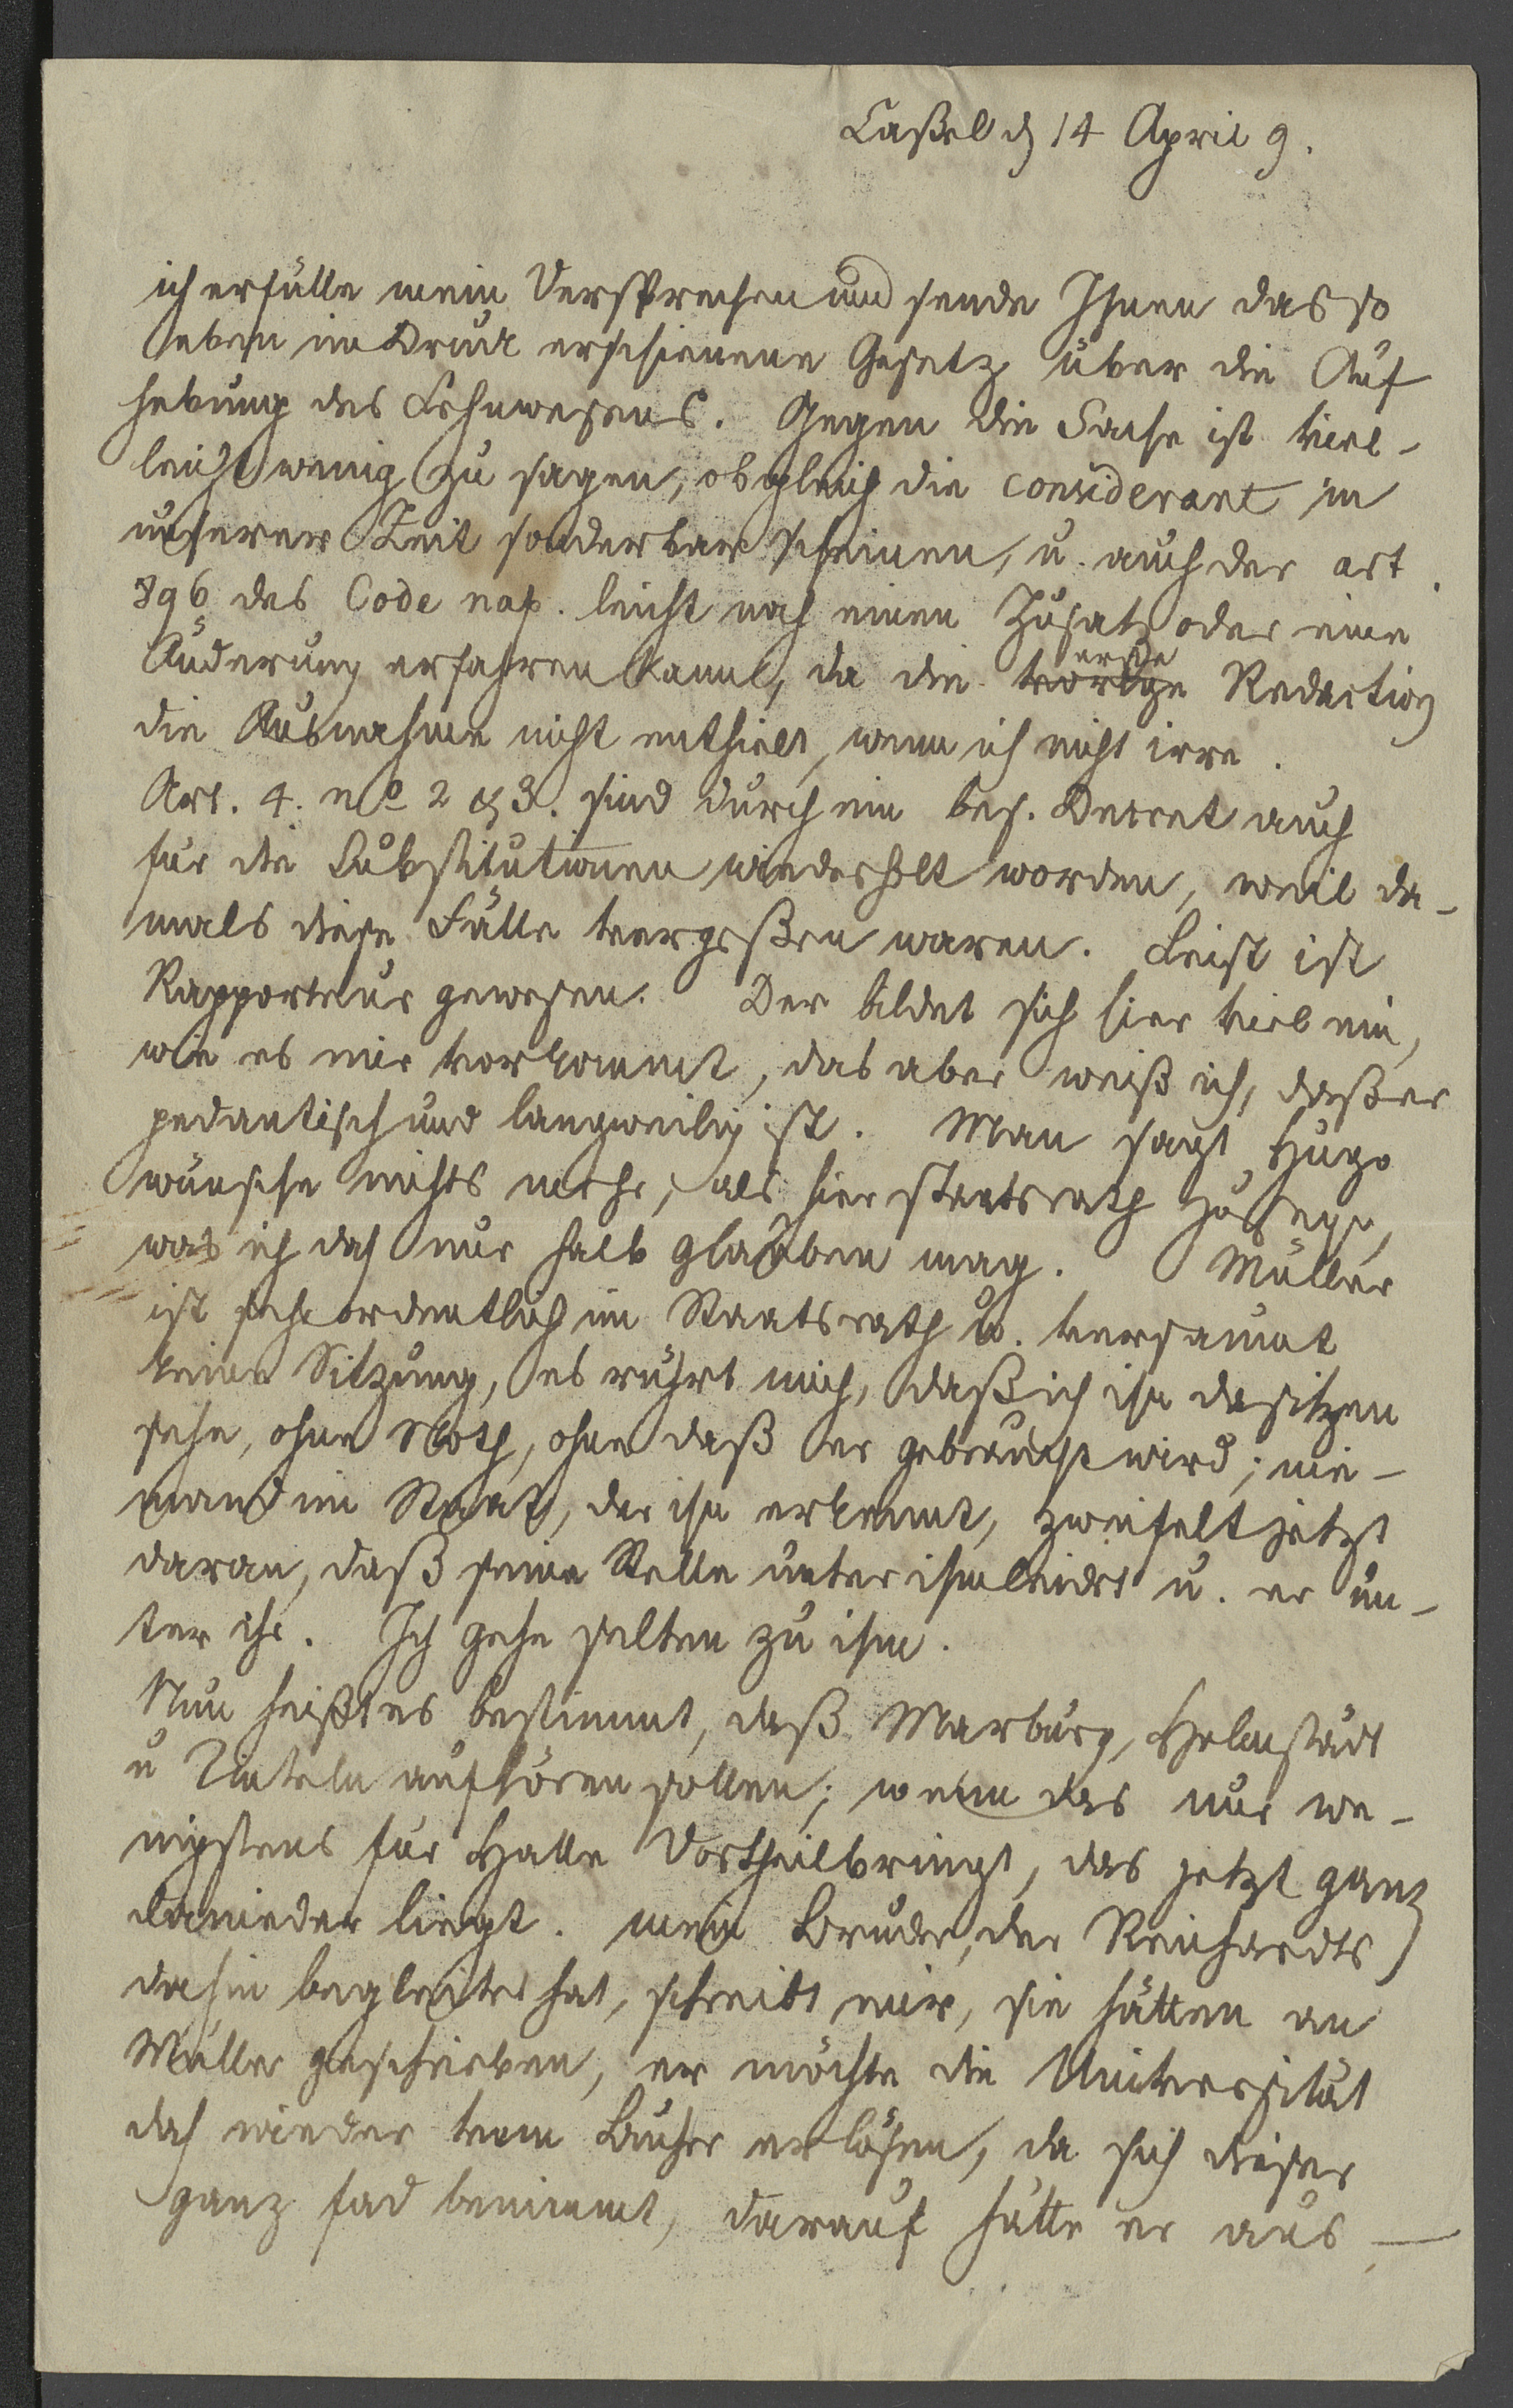 Caßel d 14 April 9.
ich erfülle mein Versprechen und sende Ihnen das so
eben im Druck erschienene Gesetz über die Auf
hebung des Lehnwesens. Gegen die Sache ist viel-
leicht wenig zu sagen, obgleich die considerant in
unserer Zeit sonderbar scheinen, u. auch der art.
896 des Code nap. leicht noch einen Zusatz oder eine
Änderung erfahren kann, da die erste vorige Redaction
die Ausnahme nicht enthielt, wenn ich nicht irre.
Art. 4. no 2 & 3. sind durch ein bes. Decret auch
für die Substitutionen wiederholt worden, weil da-
mals diese Fälle vergeßen waren. Leist ist
Rapporteur gewesen. Der bildet sich hier viel ein,
wie es mir vorkommt, das aber weiß ich, daß er
pedantisch und langweilig ist. Man sagt, Hugo
wünsche nichts mehr, als hier Staatsrath zu seyn,
was ich doch nur halb glauben mag. Müller
ist sehr ordentlich im Staatsrath u. versäumt
keine Sitzung, es rührt mich, daß ich ihn da sitzen
sehe, ohne Noth, ohne daß er gebraucht wird; nie-
mand im Staat, der ihn erkennt, zweifelt jetzt
daran, daß seine Stelle unter ihm leidet u. er un-
ter ihr. Ich gehe selten zu ihm.
Nun heißt es bestimmt, daß Marburg, Helmstädt
u Rinteln aufhören sollen; wenn das nur we-
nigstens für Halle Vortheil bringt, das jetzt ganz
danieder liegt. mein Bruder, der Reichardts
dahin begleitet hat, schreibt mir, sie hätten an
Müller geschrieben, er möchte die Universität
doch wieder vom Bucher erlösen, da sich dieser
ganz fad benimmt, darauf hätte er aus-